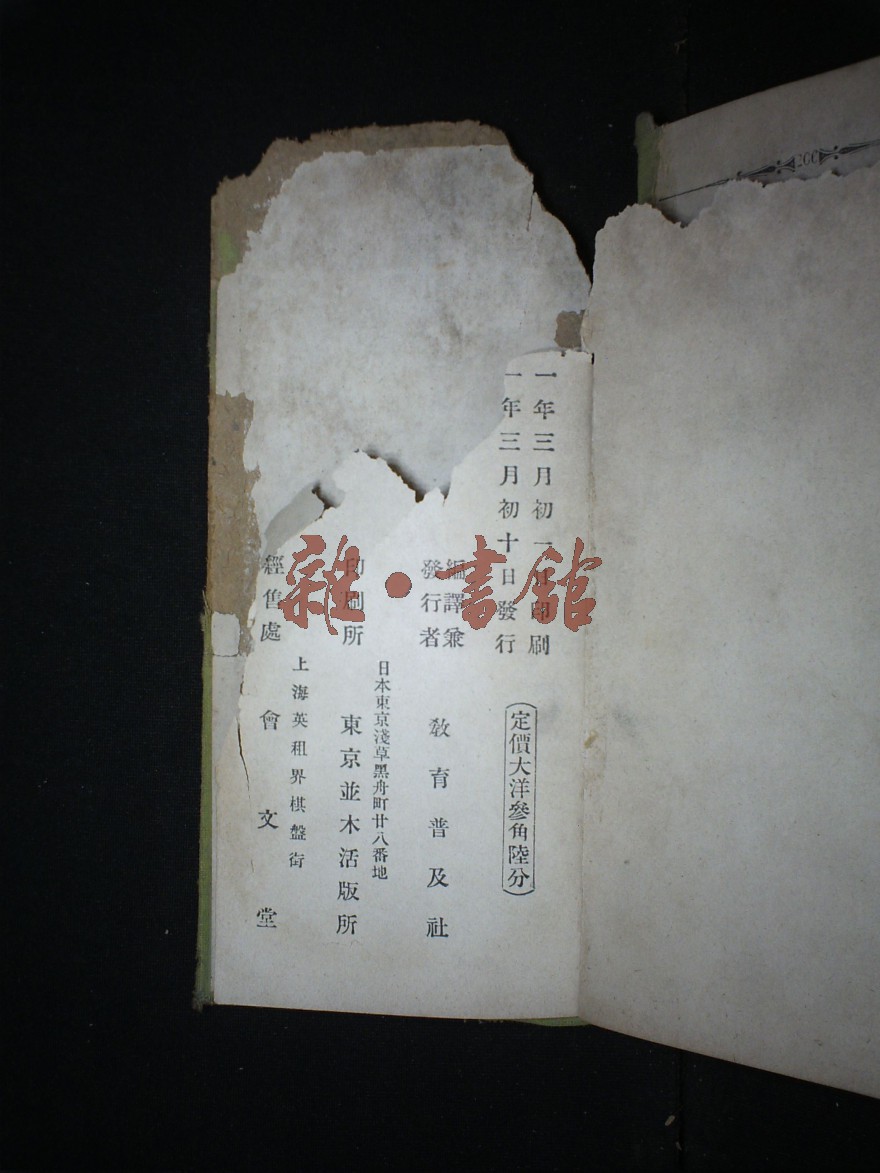 一年三月初一日印刷
一年三月初十日發行
(定價大洋參角陸分)
編譯兼
發行者
教育普及社
日本東京淺草黑舟町廿八番地
印刷所 東京並木活版所
上海英租界棋盤街
經售處 會文堂
雜·書館